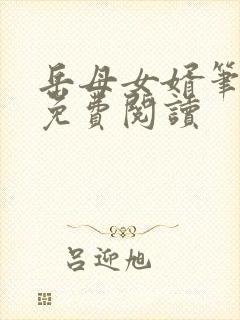 岳母女婿筆
免費閱讀
呂迎旭